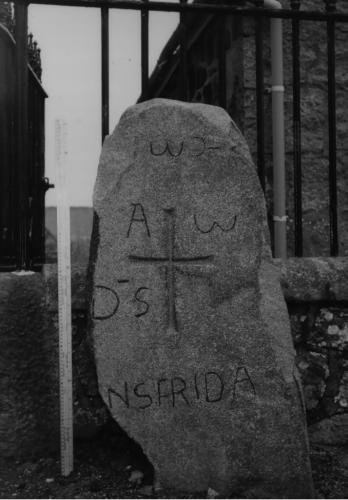 A W
D̄S
NSFRIDA